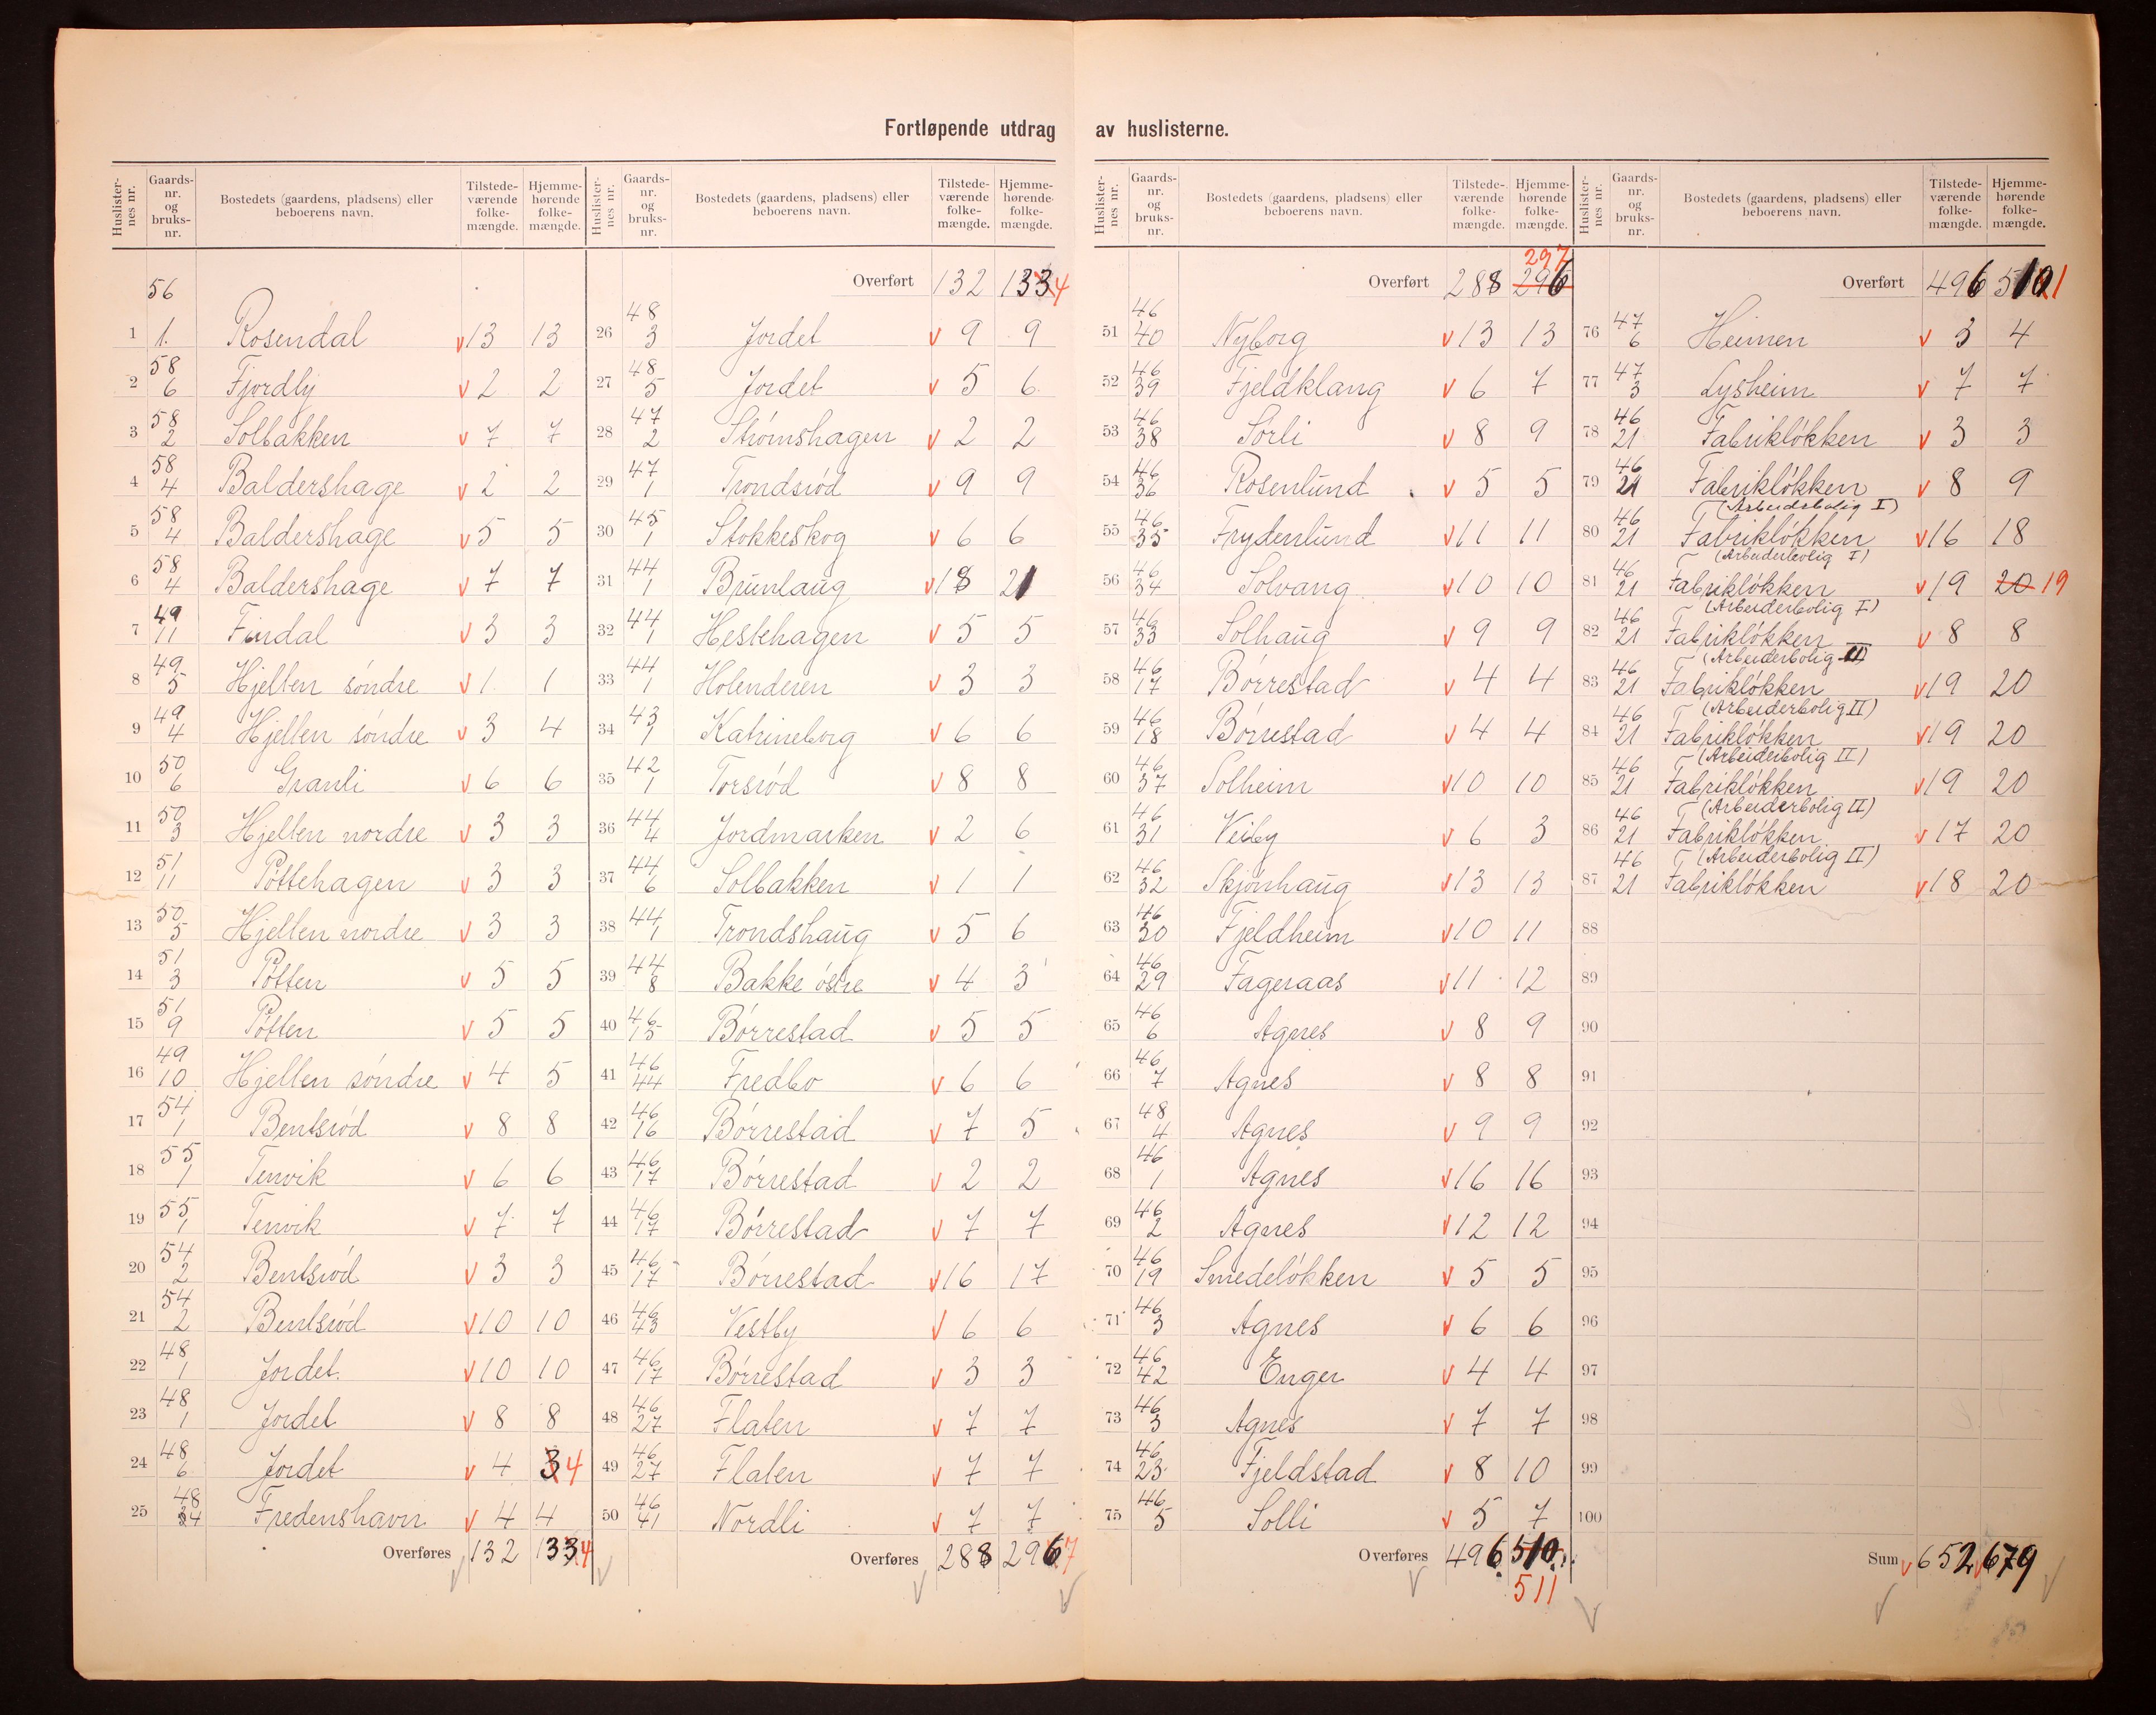 Fortløpende utdrag av huslisterne.
Huslisternes nr. | Gaards-nr. og bruks-nr. | Bostedets (gaardens, pladsens) eller beboerens navn. | Tilstedeværende folkemængde. | Hjemmehørende folkemængde.
1 56 1. Rosendal v 13 13
2 58 6 Fjordly v 2 2
3 58 2 Solbakken v 7 7
4 58 4 Baldershage v 2 2
5 58 4 Baldershage v 5 5
6 58 4 Baldershage v 7 7
7 49 11 Findal v 3 3
8 49 5 Hjellen søndre v 1 1
9 49 4 Hjellen søndre v 3 4
10 50 6 Granli v 6 6
11 50 3 Hjellen nordre v 3 3
12 51 11 Pøttehagen v 3 3
13 50 5 Hjellen nordre v 3 3
14 51 3 Pøtten v 5 5
15 51 9 Pøtten v 5 5
16 49 10 Hjellen søndre v 4 5
17 54 1 Bentsrød v 8 8
18 55 1 Tenvik v 6 6
19 55 1 Tenvik v 7 7
20 54 2 Bentsrød v 3 3
21 54 2 Bentsrød v 10 10
22 48 1 Jordet v 10 10
23 48 1 Jordet v 8 8
24 48 6 Jordet v 4 3 4
25 48 4 Fredenshavn v 4 4
Overføres 132 133 4
Huslisternes nr. | Gaards-nr. og bruks-nr. | Bostedets (gaardens, pladsens) eller beboerens navn. | Tilstedeværende folkemængde. | Hjemmehørende folkemængde.
Overført 132 133 4
26 48 3 Jordet v 9 9
27 48 5 Jordet v 5 6
28 47 2 Strømshagen v 2 2
29 47 1 Trondsrød v 9 9
30 45 1 Stokkeskog v 6 6
31 44 1 Brunlaug v 18 21
32 44 1 Hestehagen v 5 5
33 44 1 Holenderen v 3 3
34 43 1 Katrineborg v 6 6
35 42 1 Torsrød v 8 8
36 44 4 Jordmarken v 2 6
37 44 6 Solbakken v 1 1
38 44 1 Trondshaug v 5 6
39 44 8 Bakke østre v 4 3
40 46 15 Børrestad v 5 5
41 46 44 Fredbo v 6 6
42 46 16 Børrestad v 7 5
43 46 17 Børrestad v 2 2
44 46 17 Børrestad v 7 7
45 46 17 Børrestad v 16 17
46 46 43 Vestby v 6 6
47 46 17 Børrestad v 3 3
48 46 27 Flaten v 7 7
49 46 27 Flaten v 7 7
50 46 41 Nordli v 7 7
Overføres 288 296 7
Huslisternes nr. | Gaards-nr. og bruks-nr. | Bostedets (gaardens, pladsens) eller beboerens navn. | Tilstedeværende folkemængde. | Hjemmehørende folkemængde.
297
Overført 288 296
51 46 40 Nyborg v 13 13
52 46 39 Fjeldklang v 6 7
53 46 38 Sørli v 8 9
54 46 36 Rosenlund v 5 5
55 46 35 Frydenlund v 11 11
56 46 34 Solvang v 10 10
57 46 33 Solhaug v 9 9
58 46 17 Børrestad v 4 4
59 46 18 Børrestad v 4 4
60 46 37 Solheim v 10 10
61 46 31 Veiby v 6 3
62 46 32 Skjønhaug v 13 13
63 46 30 Fjeldheim v 10 11
64 46 29 Fageraas v 11 12
65 46 6 Agnes v 8 9
66 46 7 Agnes v 8 8
67 48 4 Agnes v 9 9
68 46 1 Agnes v 16 16
69 46 2 Agnes v 12 12
70 46 19 Smedeløkken v 5 5
71 46 3 Agnes v 6 6
72 46 42 Enger v 4 4
73 46 3 Agnes v 7 7
74 46 23 Fjeldstad v 8 10
75 46 5 Solli v 5 7
Overføres 496 510
511
Huslisternes nr. | Gaards-nr. og bruks-nr. | Bostedets (gaardens, pladsens) eller beboerens navn. | Tilstedeværende folkemængde. | Hjemmehørende folkemængde.
Overført 496 510 1
76 47 6 Heimen v 3 4
77 47 3 Lysheim v 7 7
78 46 21 Fabrikløkken v 3 3
79 46 21 Fabrikløkken v 8 9
(Arbeidsbolig I)
80 46 21 Fabrikløkken v 16 18
(Arbeiderbolig I)
81 46 21 Fabrikløkken v 19 20 19
(Arbeiderbolig I)
82 46 21 Fabrikløkken v 8 8
(Arbeiderbolig II)
83 46 21 Fabrikløkken v 19 20
(Arbeiderbolig II)
84 46 21 Fabrikløkken v 19 20
(Arbeiderbolig II)
85 46 21 Fabrikløkken v 19 20
(Arbeiderbolig II)
86 46 21 Fabrikløkken v 17 20
(Arbeiderbolig II)
87 46 21 Fabrikløkken v 18 20
88
89
90
91
92
93
94
95
96
97
98
99
100
Sum v 652 v 679